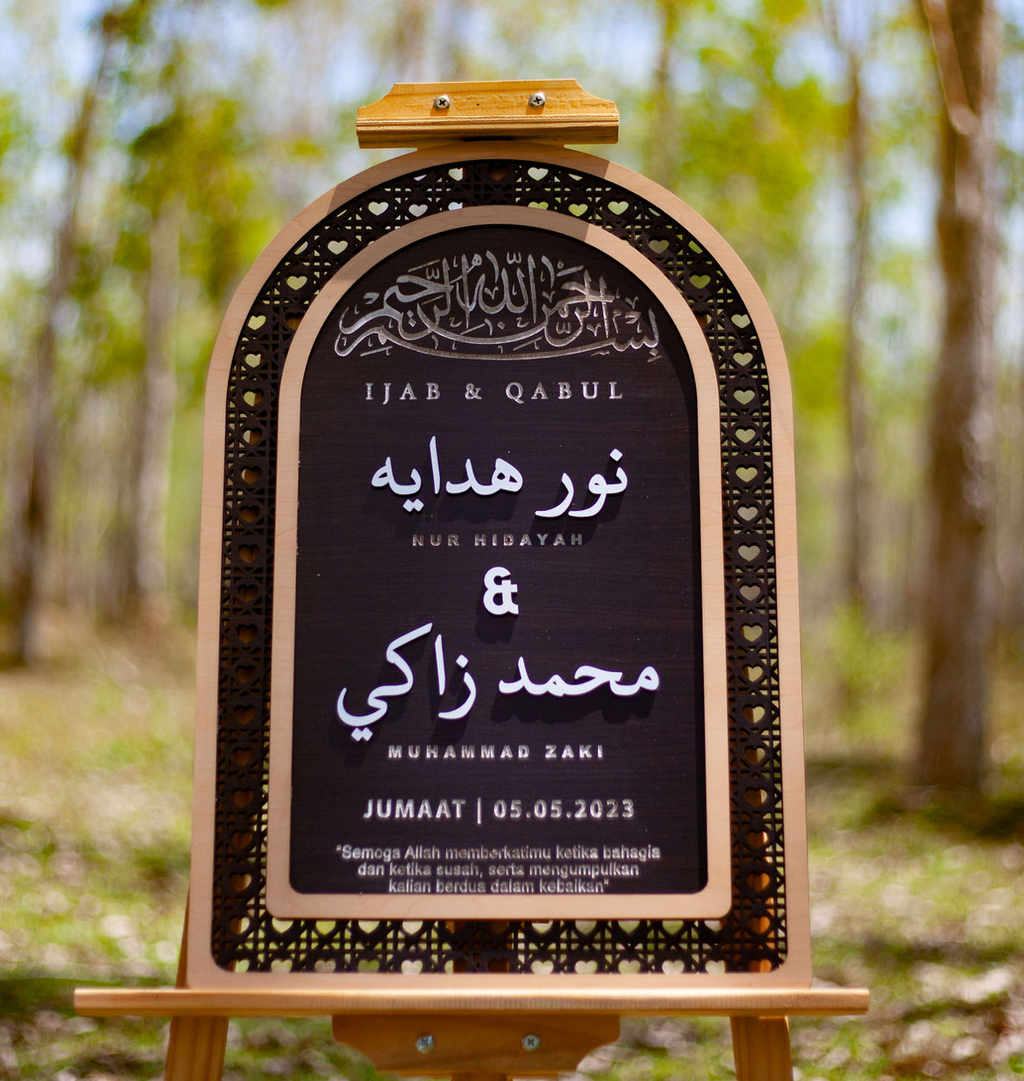 بسم الله الرحمن الرحيم
IJAB & QABUL
نور هدايه
NUR HIDAYAH
&
محمد زاكي
MUHAMMAD ZAKI
JUMAAT | 05.05.2023
"Semoga Allah memberkatimu ketika bahagia
dan ketika susah, serta mengumpulkan
kalian berdua dalam kebaikan"